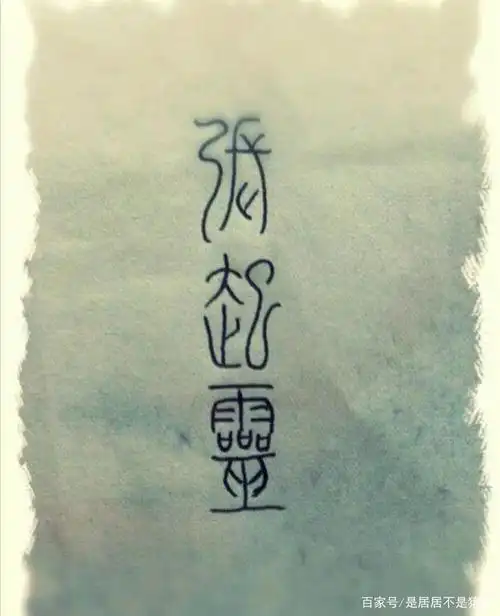 張起靈
百家号/是居居不是猪